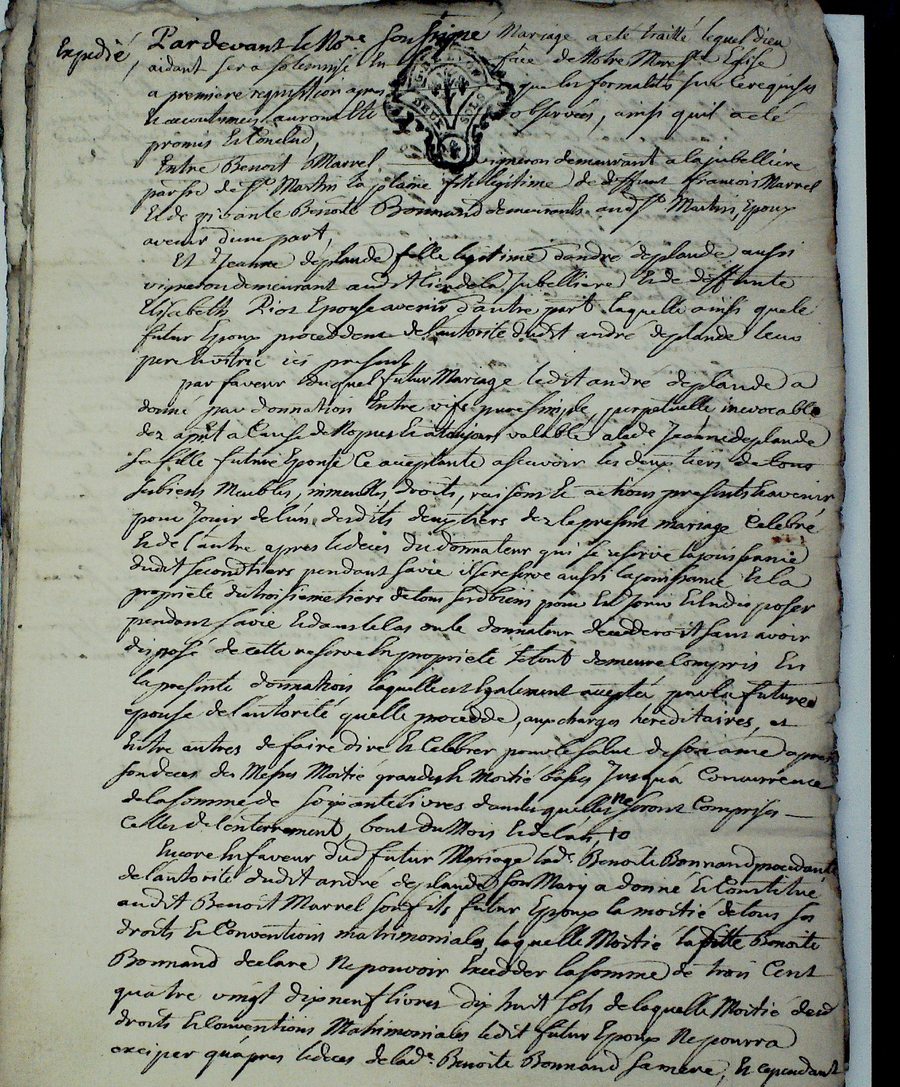 Expedié,
Pardevant le No.re soussigné Mariage a eté traitté lequel dieu
aidant sera solemnisé en face de Notre Mere Ste Eglise
a premiere requisition apres que les formalités sur ce requises
et accoutumées auront eté observées, ainsi qu'il a eté
GEN. LYON
DEUX SOLS
promis et Conclud,
Entre Benoit Marrel vigneron demeurant a la jubelliere
parsse de St Martin la plaine fils legitime de deffunt francois Marrel
et de vivante Benoite Bonnand demeurante aud. St Martin, Epoux
avenir d'une part,
Et Jeanne deplaude fille legitime d'andré deplaude aussi
vigneron demeurant audit lieu de la Jubelliere et de deffunte
Elisabeth Piot Epouse avenir d'autre part laquelle ainsi que le
futur Epoux proceddent de l'autorité dudit andré deplaude leurs
pere et vitric ici present
par faveur duquel futur Mariage ledit andré deplaude a
donné par donnation Entre vifs pure simple, perpetuelle irrevocable
dez a pnt a Cause de Nopces et a toujours valable a lade Jeanne deplaude
sa fille future Epouse ce aceptante a scavoir les deux tiers de tous
ses biens Meubles, immeubles, droits, raisons et actions presents et avenir
pour Jouir de l'un desdits deux tiers dez le present mariage Celebré
et de l'autre apres le deces du donnateur qui se reserve la jouissance
dudit second tiers pendant sa vie il se reserve aussi la jouissance et la
proprieté du troisieme tiers de tous ses biens pour en Jouir et en disposer
pendant sa vie et dans le cas ou le donnateur decederoit sans avoir
disposé de cette reserve en proprieté le tout demeure Compris en
la presente donnation laquelle est Egalement aceptée par la future
epouse de l'autorité quelle procedde, aux charges hereditaires, et
Entre autres de faire dire et Celebrer pour le salut de son ame apres
son deces des Messes Moitié grandes et Moitié basses Jusqu'a Concurrence
de la somme de soixante livres dans lesquelles ne seront Comprises
Celles de l'enterrement, bout du Mois et de l'an,
Encore en faveur dud. futur Mariage lade Benoite Bonnand proceddante
de l'autorité dudit andré deplaude son Mary a donné et Constitué
audit Benoit Marrel son fils futur Epoux la moitié de tous ses
droits et Conventions matrimoniales, laquelle Moitié la ditte Benoite
Bonnand declare Ne pouvoir Excedder la somme de trois Cent
quatre vingt dix neuf livres dix huit sols de laquelle Moitié desd.
droits et Conventions Matrimoniales ledit futur Epoux Ne pourra
exciper qu'apres le deces de lade Benoite Bonnand sa mere, et cependant